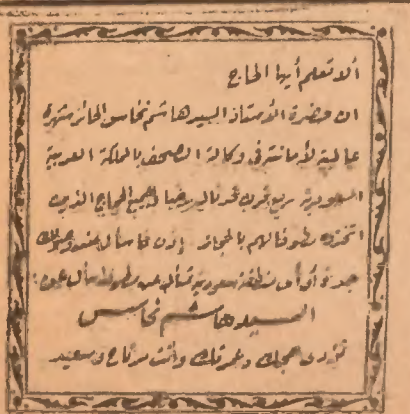 ألا تعلم أيها الحاج
ان حضرة الأستاذ السيد هاشم نحاس الحائز شهرة
عالية لأمانته في وكالة الصحف بالمملكة العربية
السعودية ربع قرن لجميع الحجاج الذين
اتخذوه مطوفا لهم بالحجاز إذن فاسأل عند وصولك
جدة أو أي منطقة سعودية تسأل عن مطوفك اسأل عن:
السيد هاشم نحاس
تؤدي حجك وعمرتك وأنت مرتاح وسعيد